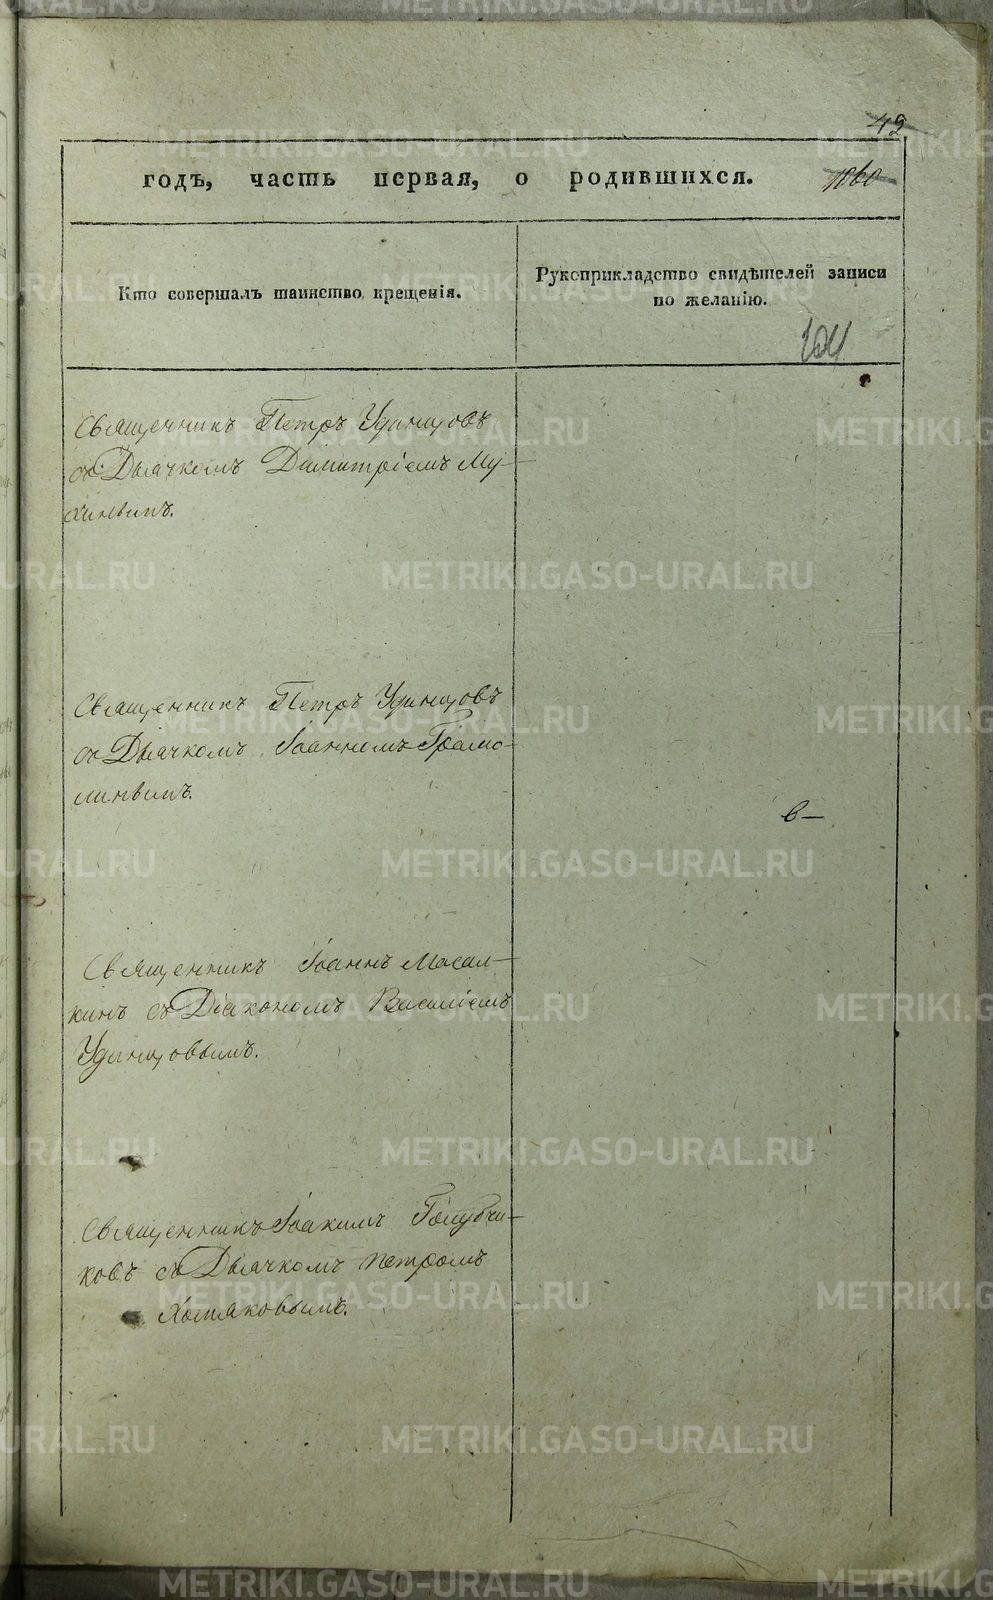 42
годъ, часть первая, о родившихся.
Кто совершалъ таинство крещенія.
Рукоприкладство свидѣтелей записи
по желанію.
104
Священникъ Петръ Удинцовъ
съ Дьячкомъ Димитріемъ Му-
хинымъ.
Священникъ Петръ Удинцовъ
съ Дьячкомъ Іоанномъ Грамо-
линымъ.
в—
Священникъ Іоаннъ Масал-
кинъ съ Діакономъ Василіемъ
Удинцовымъ.
Священникъ Іоакимъ Голубчи-
ковъ съ Дьячкомъ Петромъ
Хомяковымъ.
METRIKI.GASO-URAL.RU